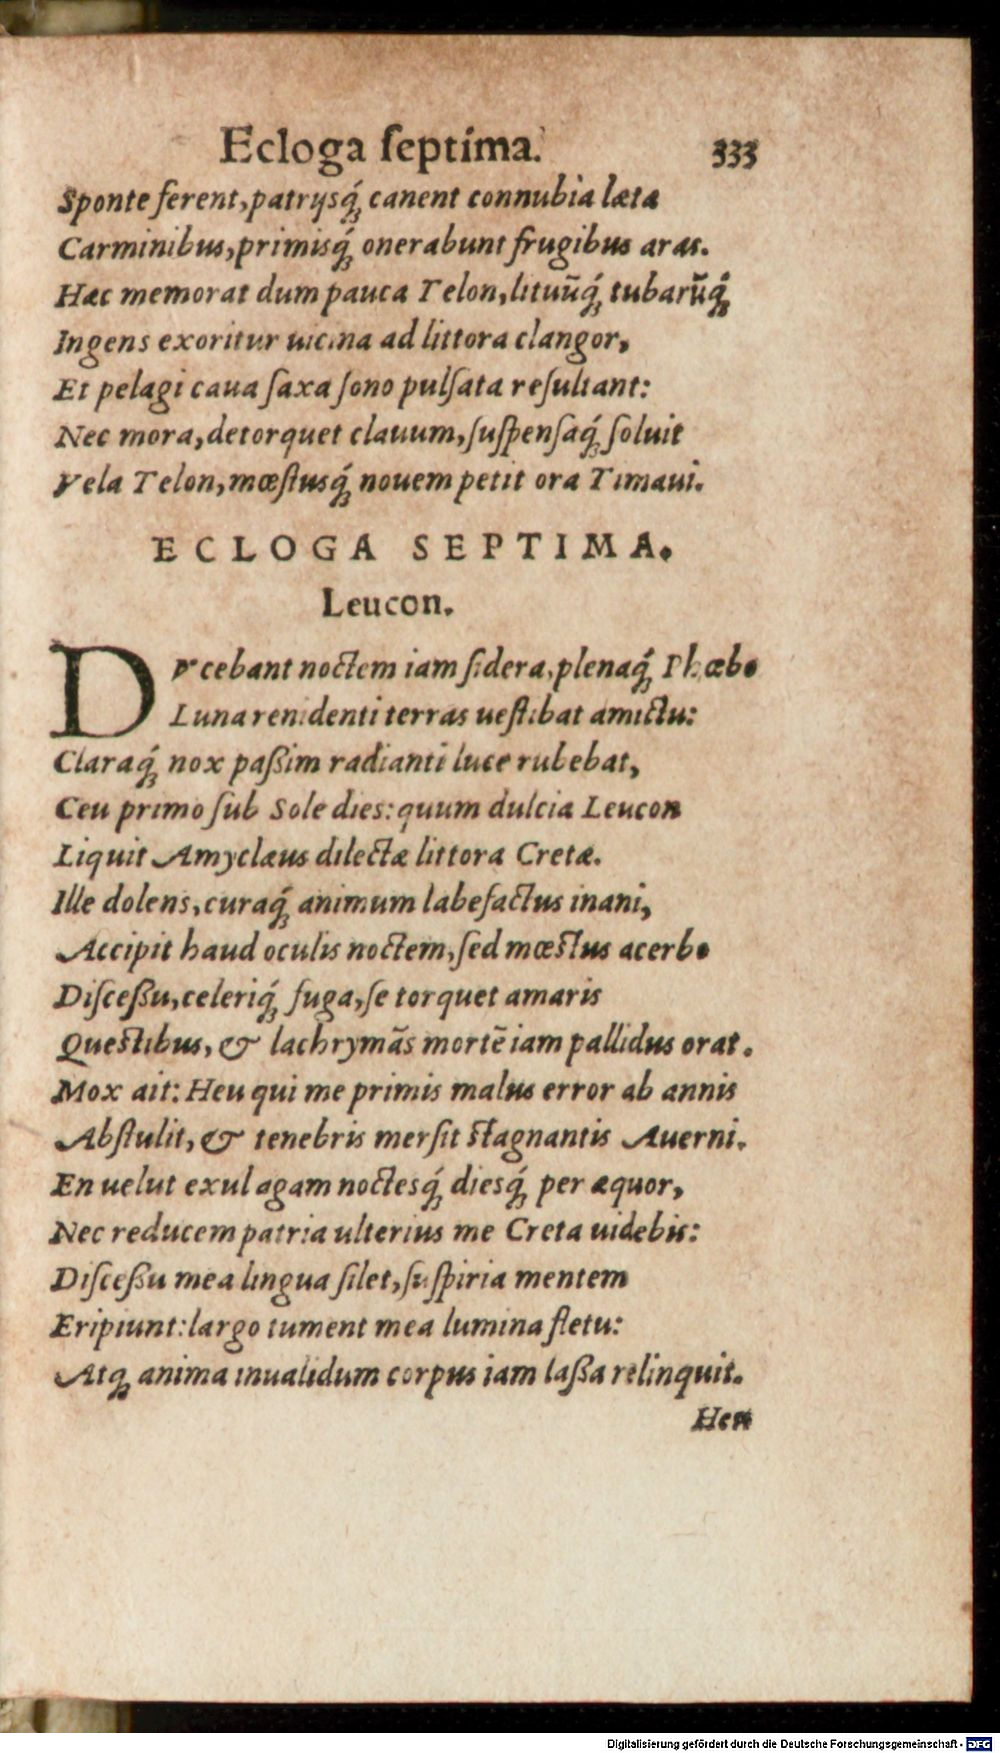 Ecloga ſeptima. 333
Sponte ferent, patrijsq́; canent connubia læta
Carminibus, primisq́; onerabunt frugibus aras.
Hæc memorat dum pauca Telon, lituũq́; tubarũq́;
Ingens exoritur uicina ad littora clangor,
Et pelagi caua ſaxa ſono pulſata reſultant:
Nec mora, detorquet clauum, ſuſpenſaq́; ſoluit
Vela Telon, mœſtusq́; nouem petit ora Timaui.
ECLOGA SEPTIMA.
Leucon.
DVcebant noctem iam ſidera, plenaq́; Phœbe
Luna renidenti terras ueſtibat amictu:
Claraq́; nox paßim radianti luce rubebat,
Ceu primo ſub Sole dies: quum dulcia Leucon
Liquit Amyclæus dilectæ littora Cretæ.
Ille dolens, curaq́; animum labefactus inani,
Accipit haud oculis noctem, ſed mœſtus acerbo
Diſceßu, celeriq́; fuga, ſe torquet amaris
Queſtibus, & lachrymãs mortẽ iam pallidus orat.
Mox ait: Heu qui me primis malus error ab annis
Abſtulit, & tenebris merſit ſtagnantis Auerni.
En uelut exul agam noctesq́; diesq́; per æquor,
Nec reducem patria ulterius me Creta uidebis:
Diſceßu mea lingua ſilet, ſuſpiria mentem
Eripiunt: largo tument mea lumina fletu:
Atq; anima inualidum corpus iam laßa relinquit.
Heu
Digitalisierung gefördert durch die Deutsche Forschungsgemeinschaft - DFG